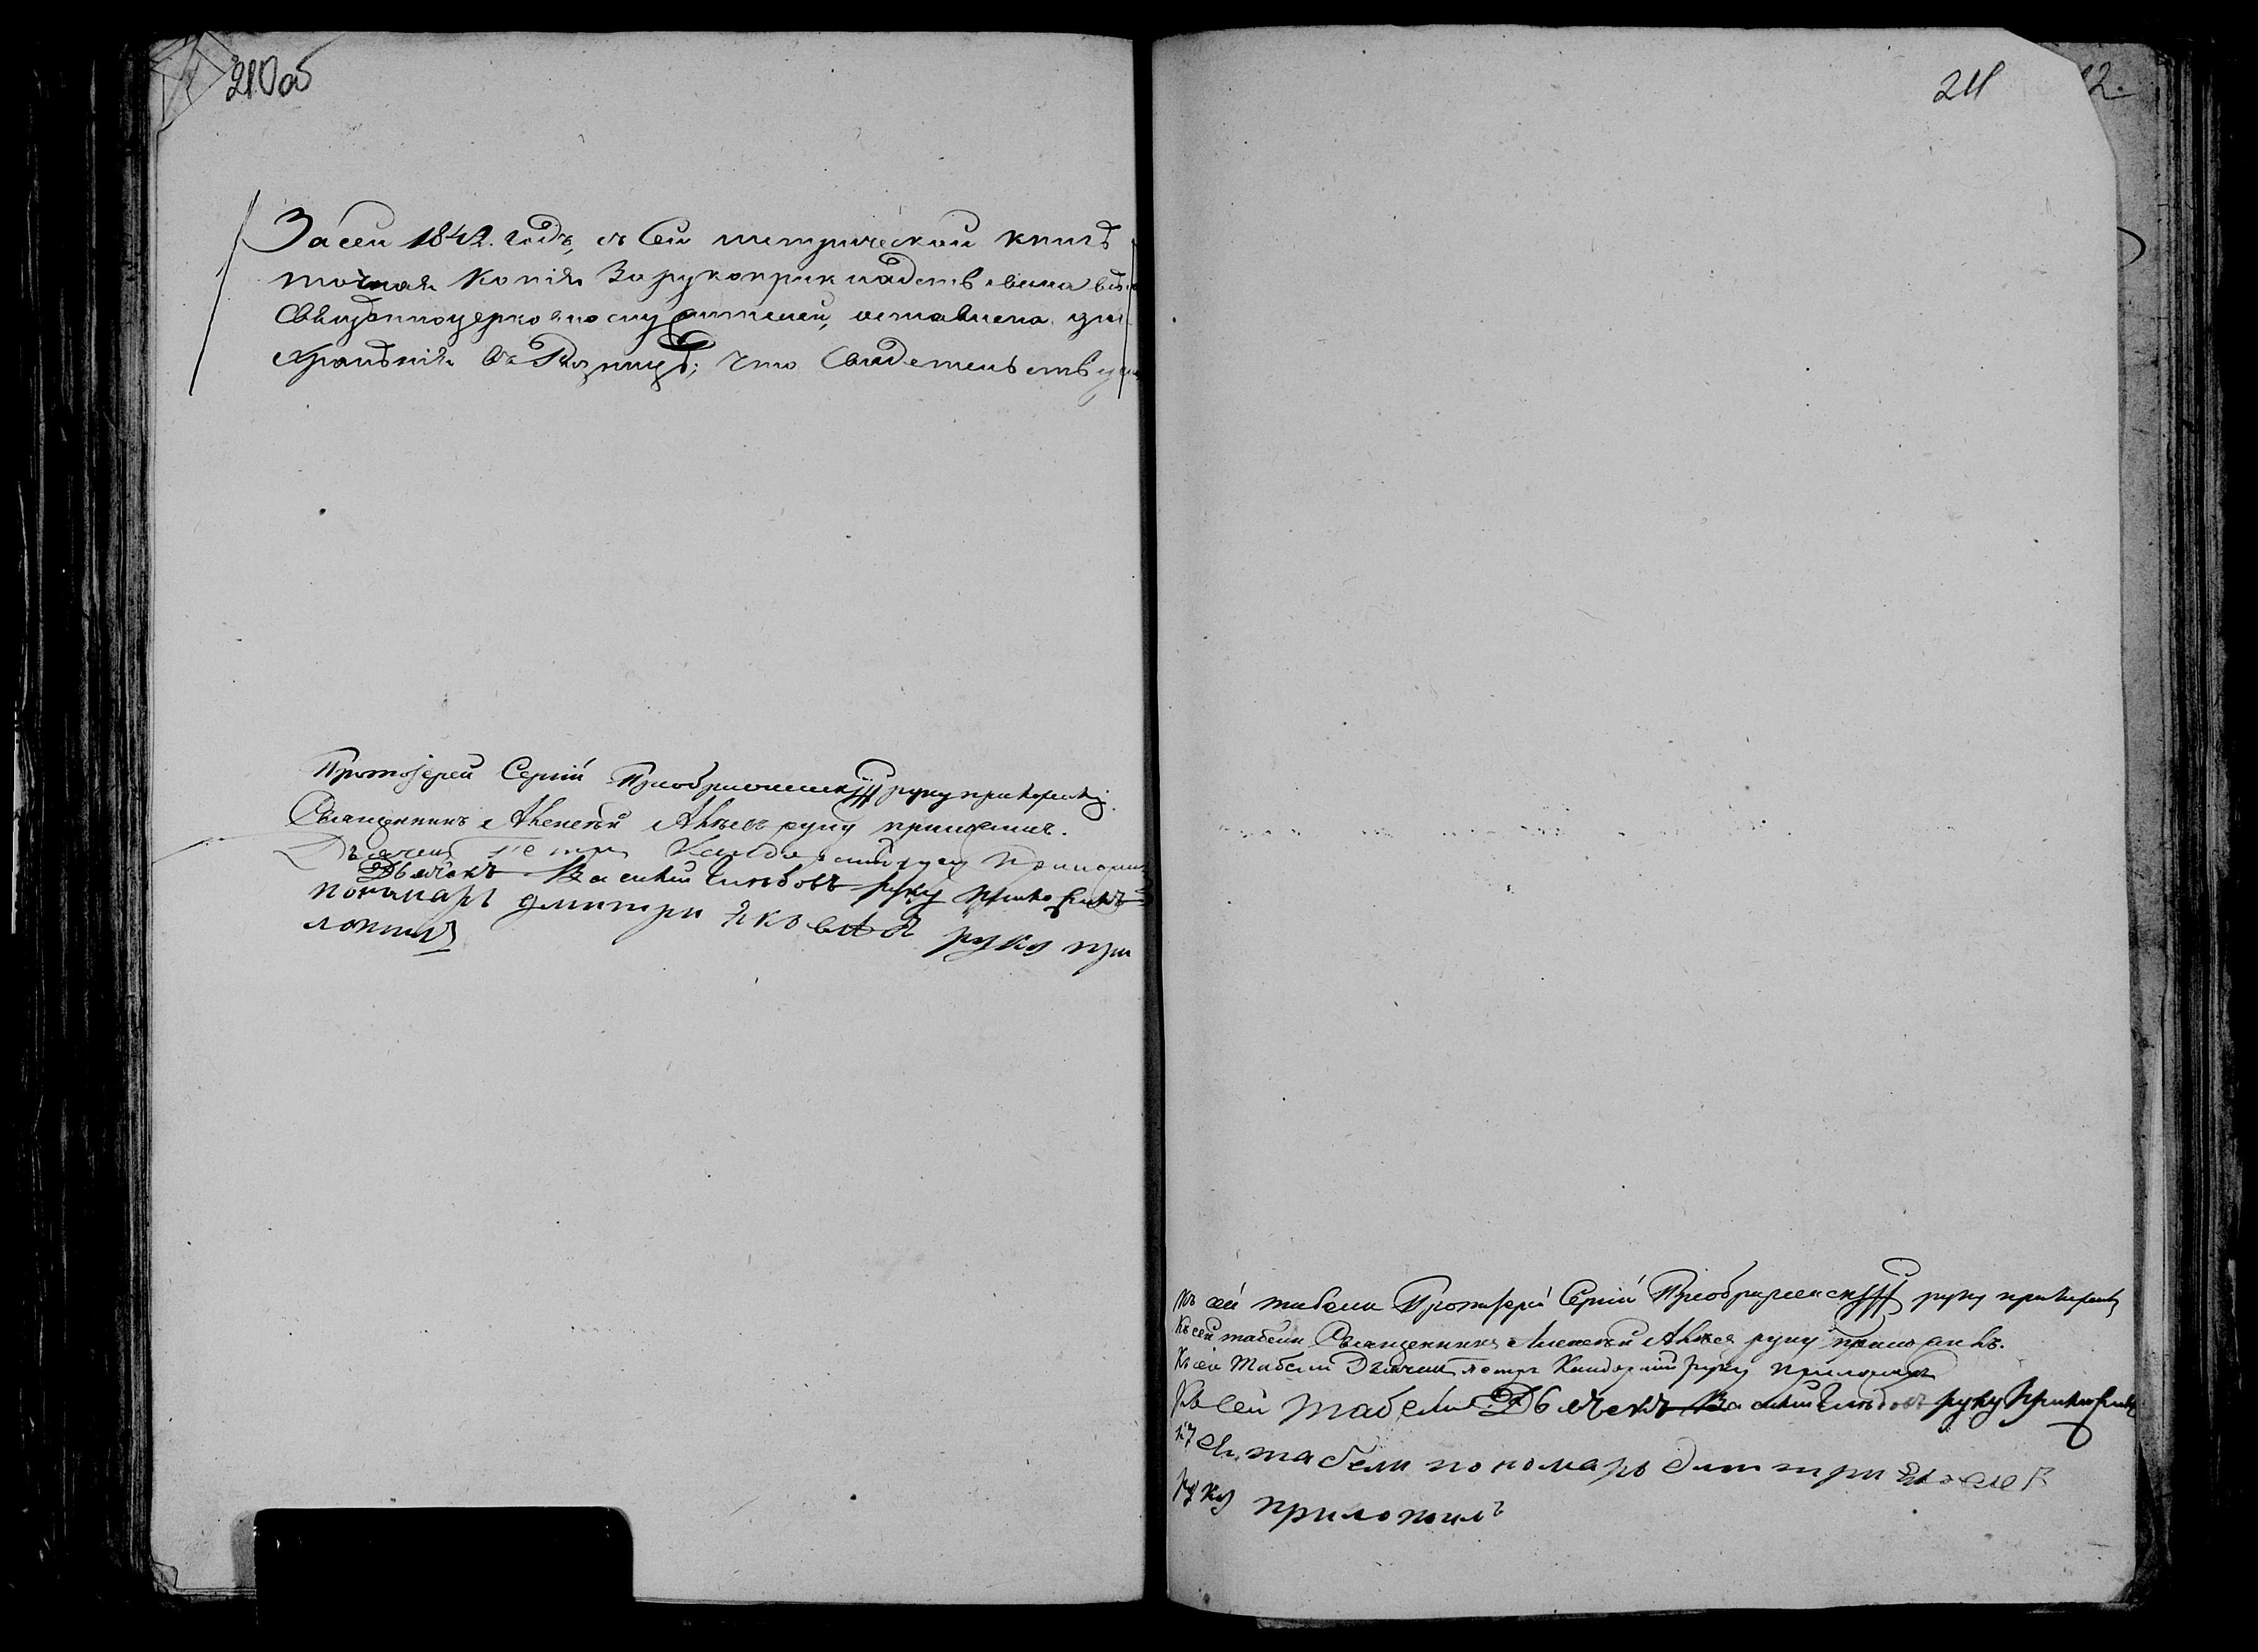 210об
За сей 1842. годъ, съ сей метрической книгѣ
точная копія за рукоприкладствомъ всѣхъ
священноцерковнослужителей, оставлена для
храненія въ Ризницѣ; что свидетельствуемъ
Протоіерей Сергій Преображенскій руку приложилъ.
Священникъ Алексѣй руку приложилъ.
Дьячекъ Петръ руку приложилъ
Дьячекъ Василий Глѣбовъ руку приложилъ
понамарь дмитри Яковлев руку при
ложилъ
211
12.
къ сей табели Протоіерей Сергій Преображенскій руку приложилъ
Къ сей табели Священникъ Алексѣй руку приложилъ.
Къ сей табели Дьячекъ Петръ руку приложилъ
Къ сей табели Дьячекъ Василий Глѣбовъ руку приложилъ
к сей табели пономарь дмитри Яковлев
руку приложилъ